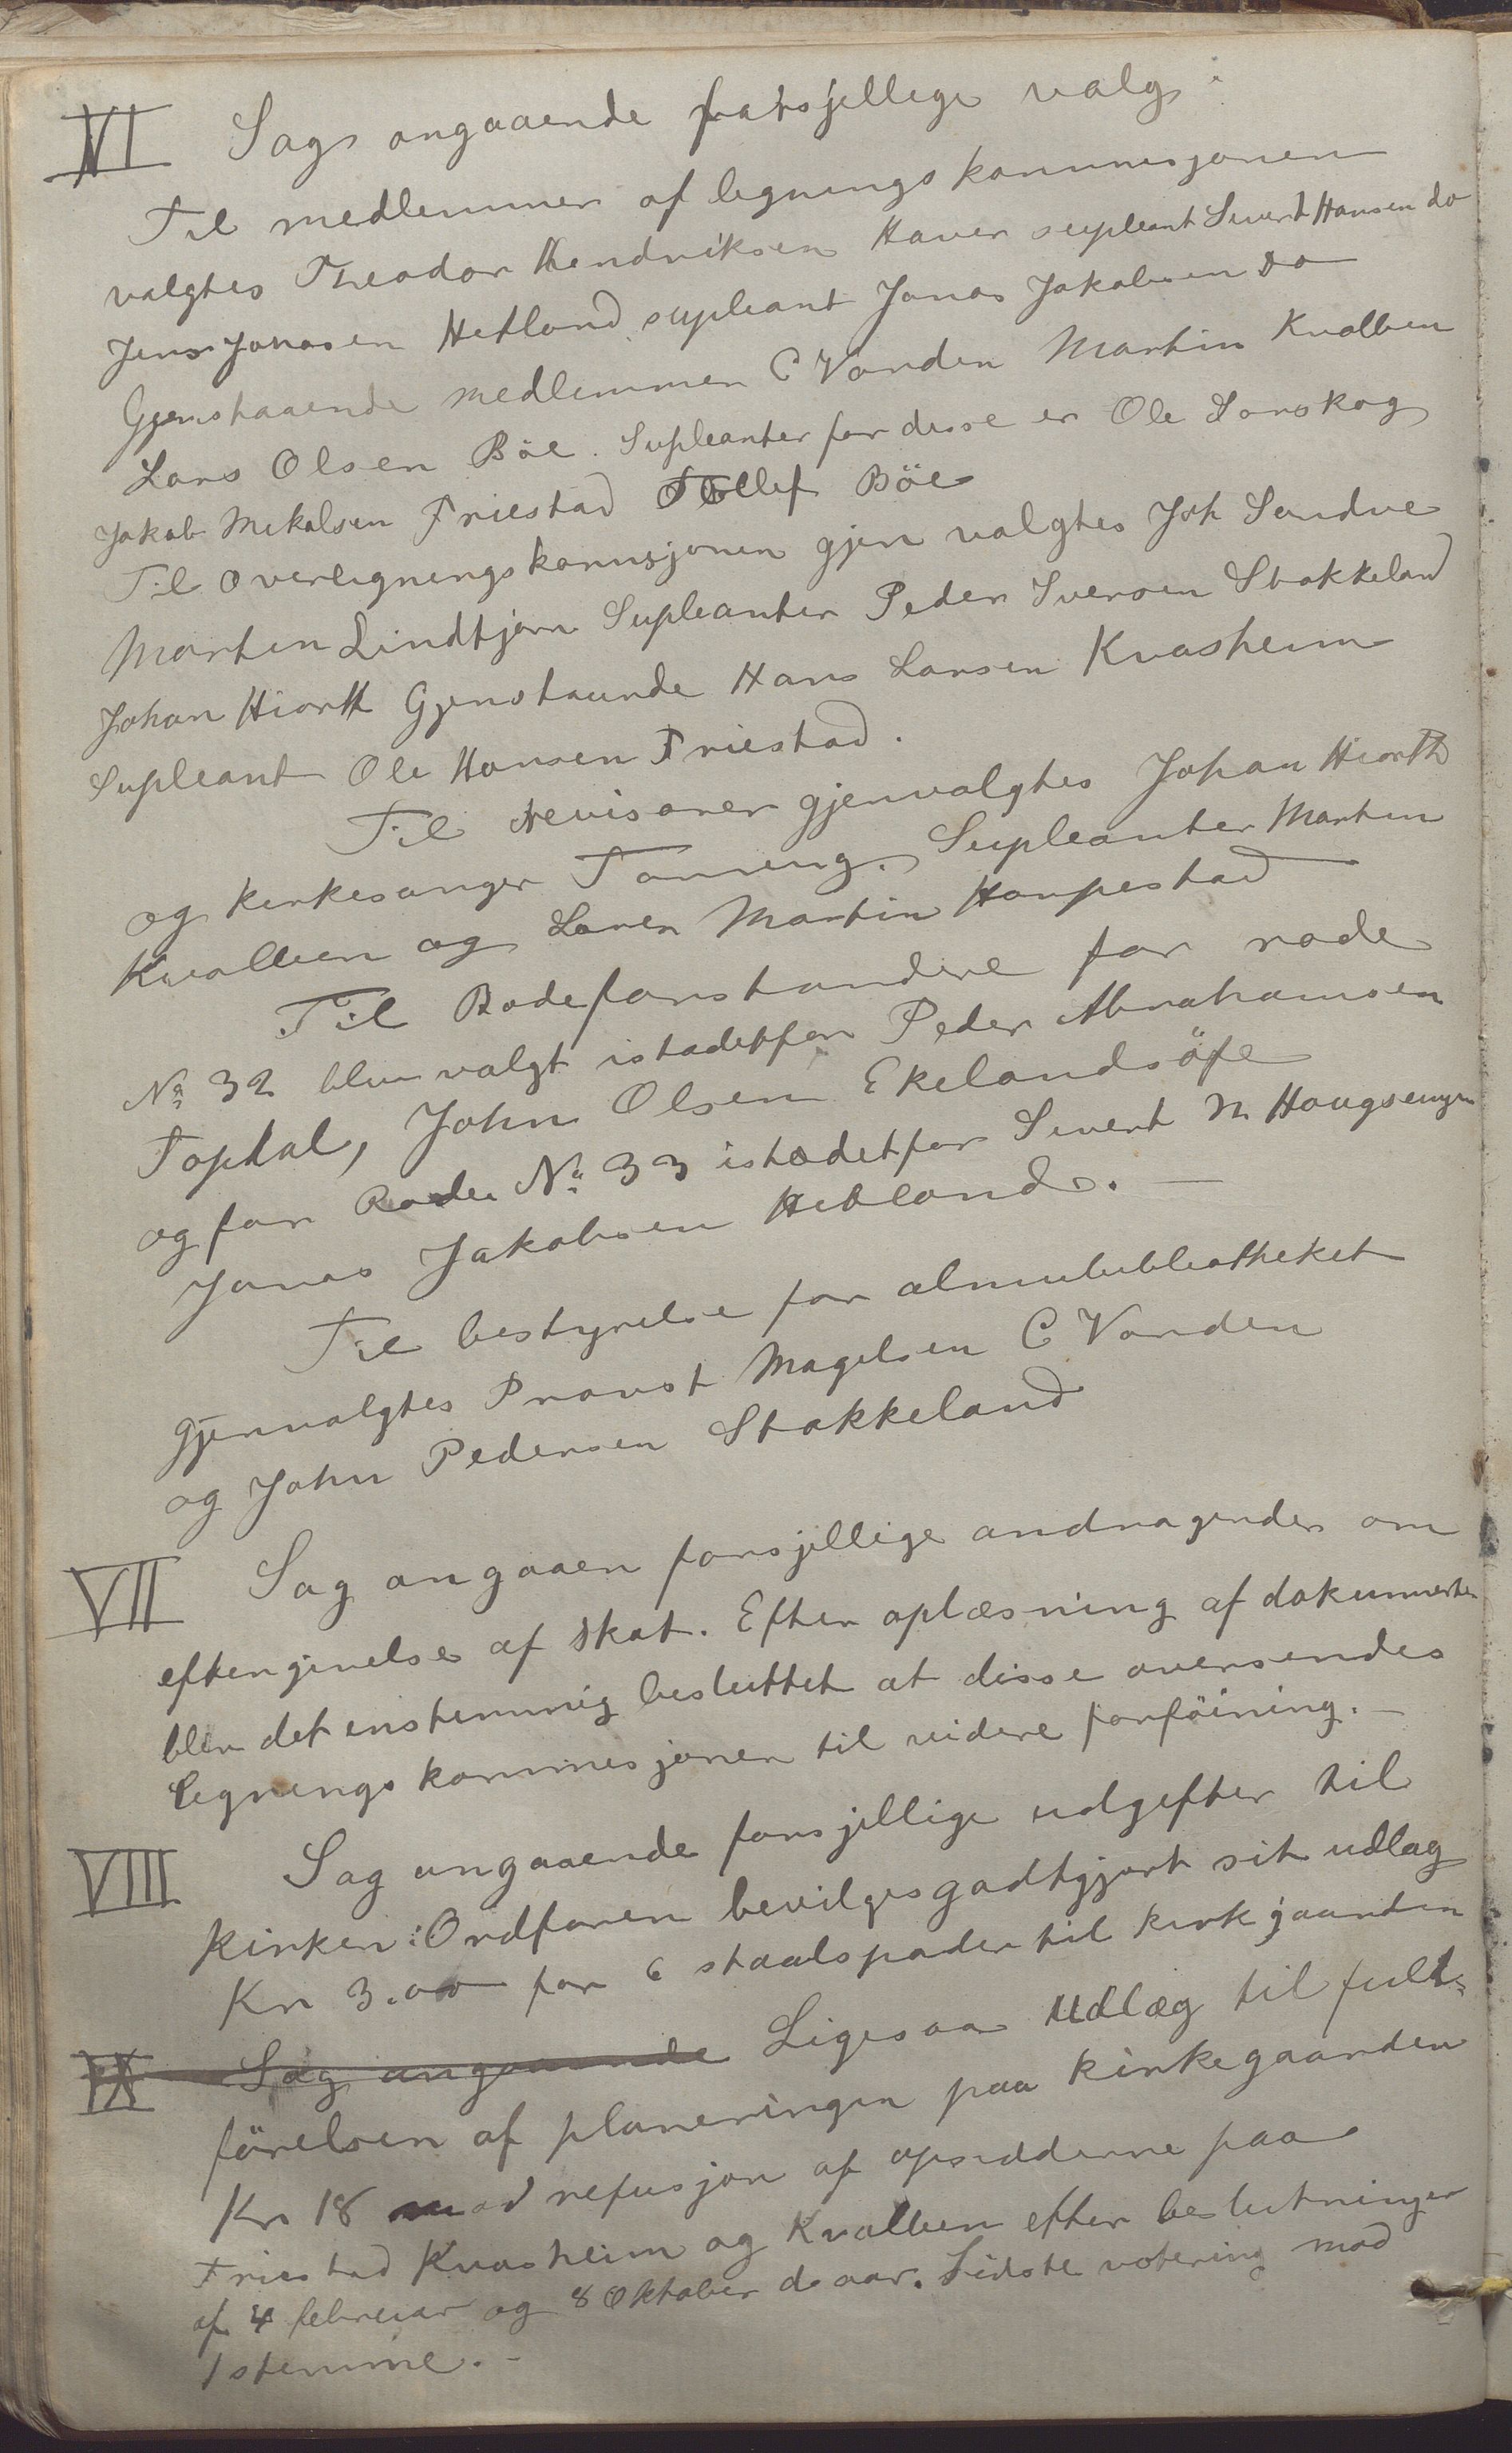 VI Sag angaaende forskjellige valg:
Til medlemmer af ligningskommisjonen
valgtes Theodor Hendriksen Haver supleant Sivert Hansen do
Jens Jonasen Hetland supleant Jonas Jakobsen do
Gjenstaaende medlemmer C Varden Martin Kvalbein
Lars Olsen Böe. Supleanter for disse er Ole Torskog
Jakob Mikalsen Friestad Tollef Böe
Til overligningskomisjonen gjen valgtes Joh Sandve
Martin Lindtjörn Supleanter Peder Iversen Stokkeland
Johan Hiorth Gjenstaaende Hans Larsen Kvasheim
Supleant Ole Hansen Friestad.
Til revisorer gjenvalgtes Johan Hiorth
og kirkesanger Tanneng. Supleanter Martin
Kvalbein og Lærer Martin Haugestad
Til Rodeforstandere for rode
No 32 blev valgt istadetfor Peder Abrahamsen
Topdal, John Olsen Ekelandsöfe
og for Rode No 33 istedetfor Sivert M Hougsengen
Jonas Jakobsen Hetland. —
Til bestyrelse for almubibliotheket
gjenvalgtes Provst Magelsen C Varden
og John Pedersen Stokkeland
VII Sag angaaen forsjellige andragender om
eftergivelse af skat. Efter oplæsning af dokumenter
blev det enstemmig besluttet at disse oversendes
ligningskommisjonen til videre forföining. —
VIII Sag angaaende forsjellige udgifter til
kirken: Ordfören bevilges godtgjort sit udlag
Kr 3.00 for 6 staalspader til kirkgaarden
IX Sag angaaende Ligesaa Udlæg til fuld-
förelsen af planeringen paa kirkegaarden
Kr 18 mod refusjon af opsidderne paa
Friestad Kvasheim og Kvalbein efter beslutninger
af 4 februar og 8 Oktober d. aar. Sidste votering mod
1 stemme. -